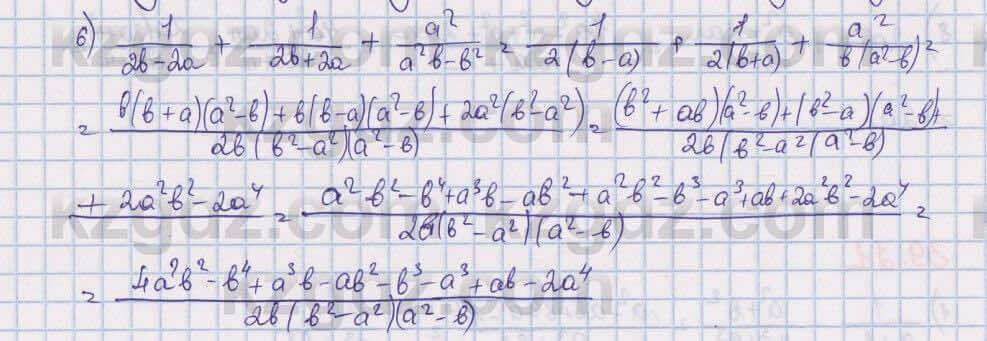 б) 1/(2b-2a) + 1/(2b+2a) + a²/(a²b-b²) = 1/(2(b-a)) + 1/(2(b+a)) + a²/(b(a²-b)) =
= (b(b+a)(a²-b)+b(b-a)(a²-b)+2a²(b²-a²))/(2b(b²-a²)(a²-b)) = ((b²+ab)(a²-b)+(b²-a)(a²-b)+/(2b(b²-a²(a²-b)
+ 2a²b²-2a⁴ = (a²b²-b⁴+a³b-ab²+a²b²-b³-a³+ab+2a²b²-2a⁴)/(2b(b²-a²)(a²-b)) =
= (4a²b²-b⁴+a³b-ab²-b³-a³+ab-2a⁴)/(2b(b²-a²)(a²-b))